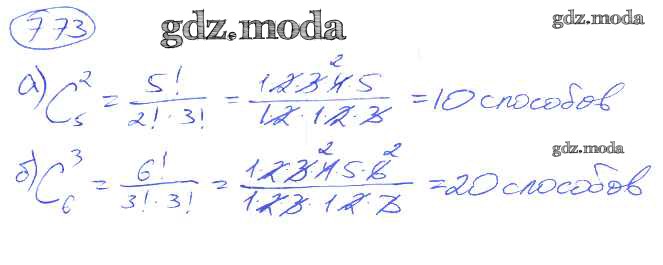 773 gdz.moda gdz.moda
а) C₅² = 5!/(2!·3!) = (1·2·3·4²·5)/(1·2·1·2·3) = 10 способов
gdz.moda
б) C₆³ = 6!/(3!·3!) = (1·2·3·4²·5·6²)/(1·2·3·1·2·3) = 20 способов